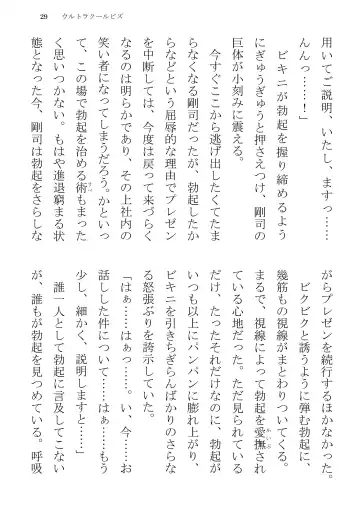 29　ウルトラクールビズ
用いてご説明、いたし、ますっ……
んんっ……！」
　ビキニが勃起を握り締めるよう
にぎゅうぎゅうと押さえつけ、剛司の
巨体が小刻みに震える。
　今すぐここから逃げ出したくてたま
らなかった剛司だったが、勃起したか
らなどという屈辱的な理由でプレゼン
を中断しては、今度は戻って来づらく
なるのは明らかであり、その上社内の
笑い者になってしまうだろう。かとい っ
て、この場で勃起を治める術もまった
く思いつかない。もはや進退窮まる状
態となった今、剛司は勃起をさらしな
がらプレゼンを続行するほかなかった。
　ビクビクと誘うように弾む勃起に、
幾筋もの視線がまとわりついてくる。
まるで、視線によって勃起を愛撫され
ている心地だった。ただ見られている
だけ、たったそれだけなのに、勃起が
いつも以上にパンパンに膨れ上がり、
ビキニを引きちぎらんばかりのさらな
る怒張ぶりを誇示していた。
「はぁ……はぁっ……。い、今……お
話しした件について……はぁ……もう
少し、細かく、説明しますと……」
　誰一人として勃起に言及してこない
が、誰もが勃起を見つめている。呼吸